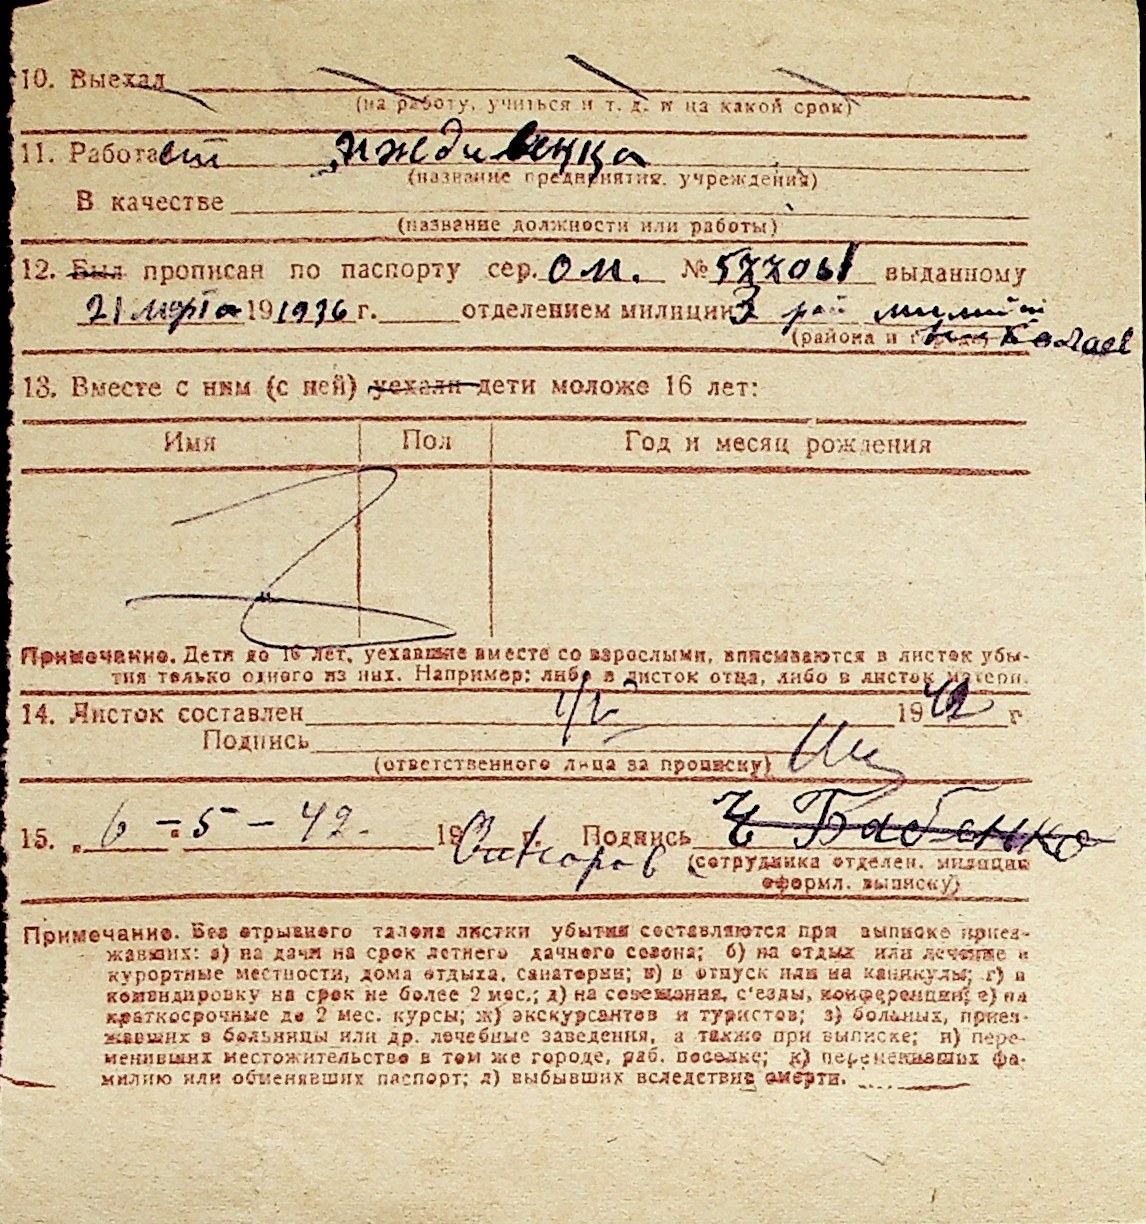 10. Выехал
(на работу, учиться и т. д. и на какой срок)
11. Работает иждивенка
(название предприятия, учреждения)
В качестве
(название должности или работы)
12. Был прописан по паспорту сер. ОМ. № 577061 выданному
21 марта 191936 г. отделением милиции 3 рай милиции
(района и города) Николаев
13. Вместе с ним (с ней) уехали дети моложе 16 лет:
Имя Пол Год и месяц рождения
Примечание. Дети до 16 лет, уехавшие вместе со взрослыми, вписываются в листок убы-
тия только одного из них. Например: либо в листок отца, либо в листок матери.
14. Листок составлен 1942 г
Подпись
(ответственного лица за прописку)
15. „ 6 - " 5 - 42. 19 г. Подпись Бабенко
(сотрудника отделен. милиции
оформл. выписку)
Примечание. Без отрывного талона листки убытия составляются при выписке приез-
жавших: а) на дачи на срок летнего дачного сезона; б) на отдых или лечение в
курортные местности, дома отдыха, санатории; в) в отпуск или на каникулы; г) в
командировку на срок не более 2 мес.; д) на совещания, с'езды, конференции; е) на
краткосрочные до 2 мес. курсы; ж) экскурсантов и туристов; з) больных, приез-
жавших в больницы или др. лечебные заведения, а также при выписке; и) пере-
менивших местожительство в том же городе, раб. поселке; к) переменивших фа-
милию или обменявших паспорт; л) выбывших вследствие смерти.